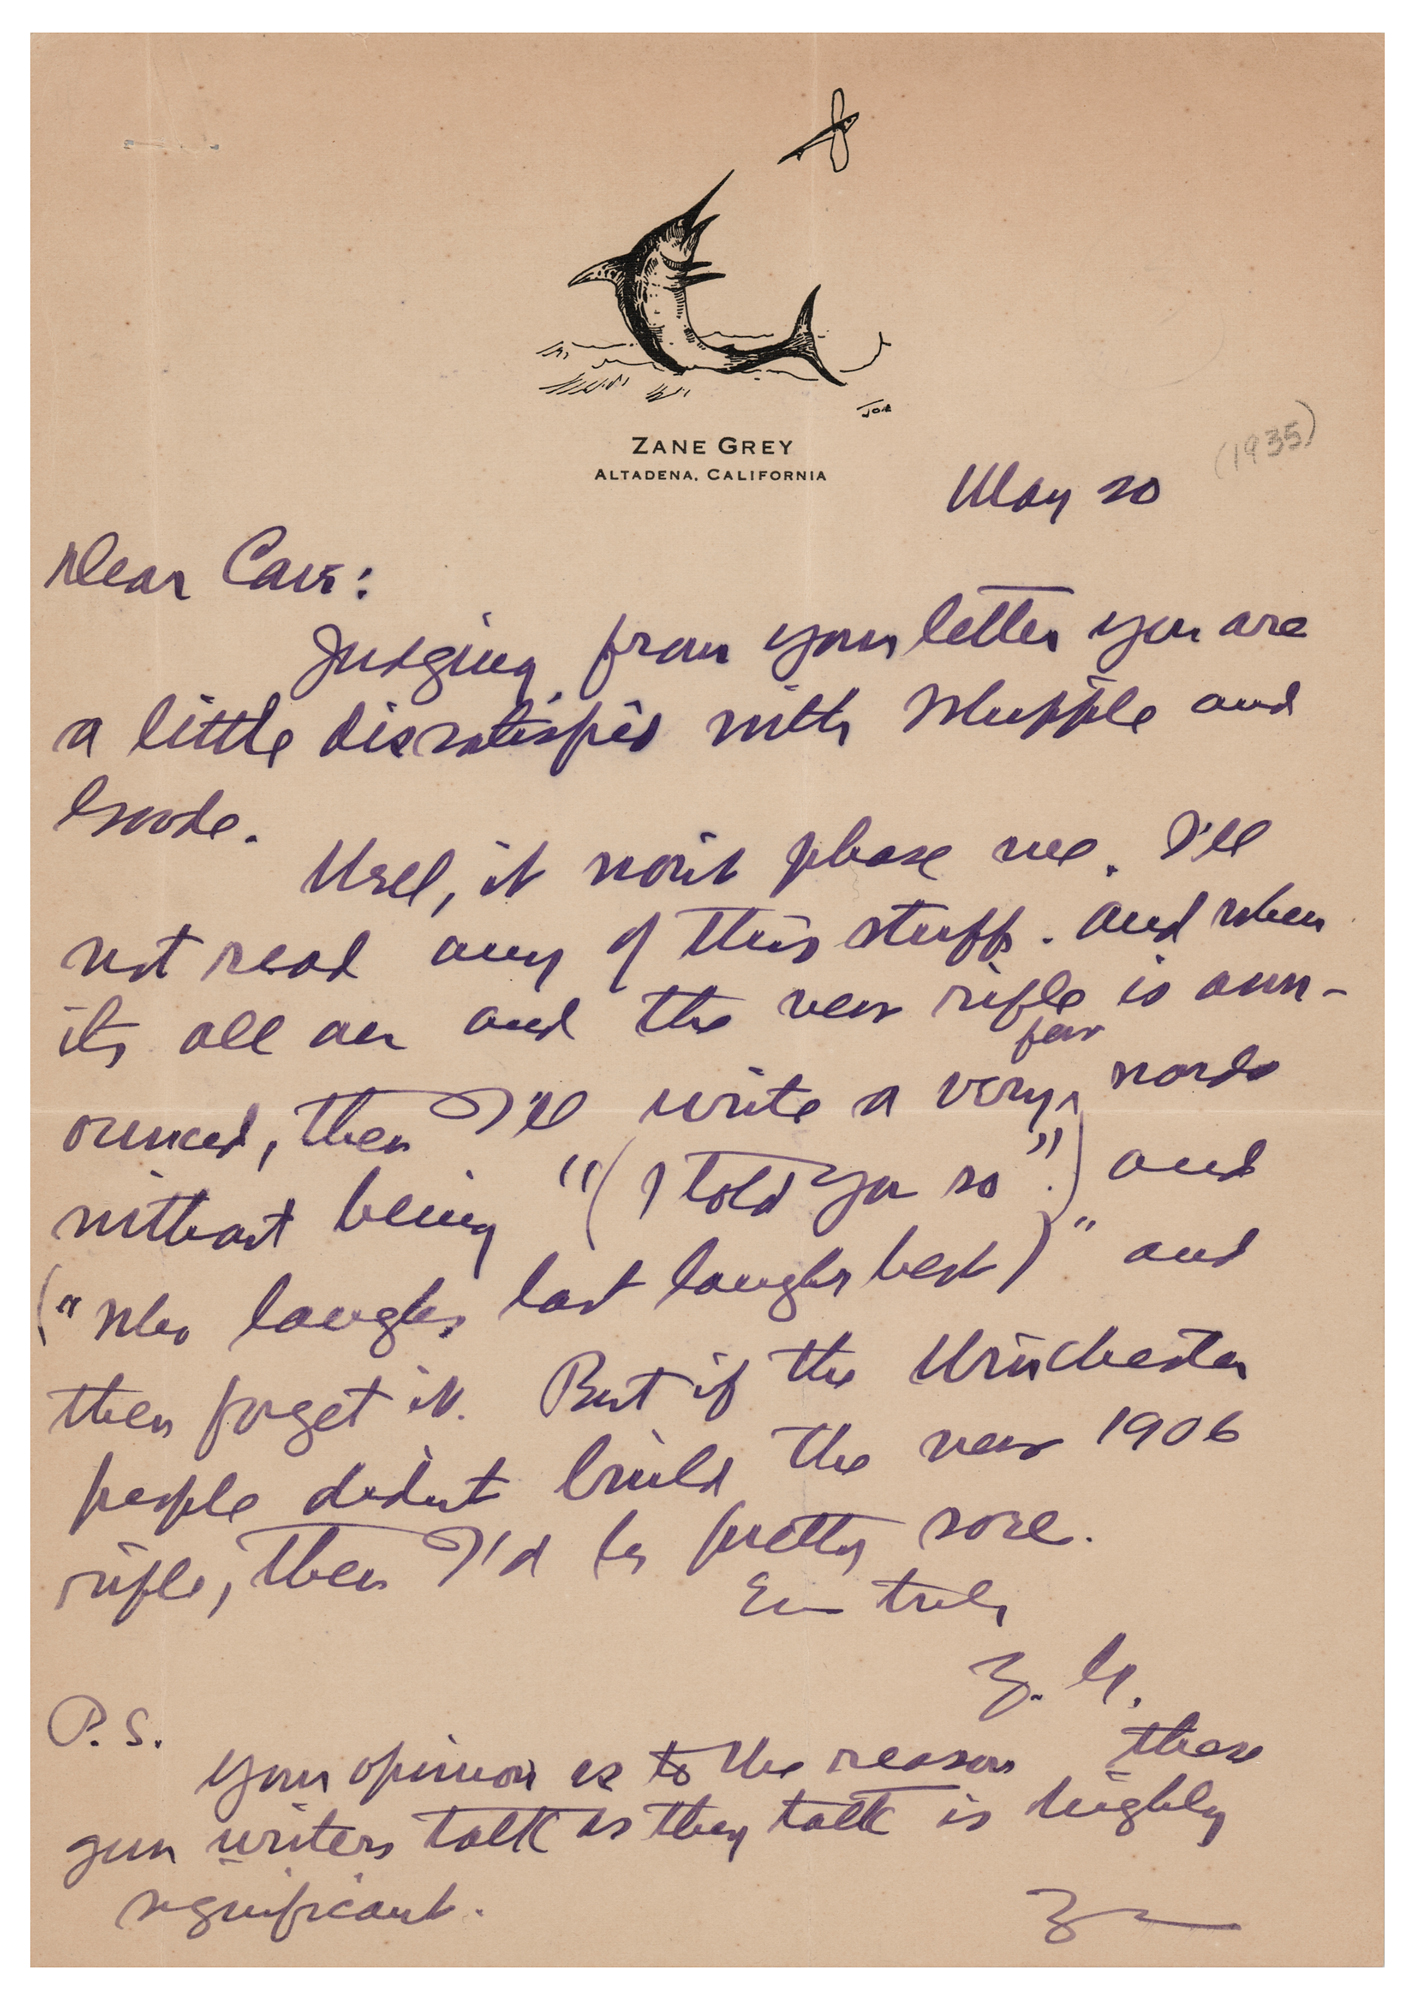 JOR
ZANE GREY
ALTADENA, CALIFORNIA
(1935)
May 20
Dear Carr:
Judging from your letter you are
a little dissatisfied with Whipple and
Goode.
Well, it won't please me. I'll
not read any of this stuff. And when
its all over and the new rifle is ann-
ounced, then I'll write a very few words
without being "(I told you so".) and
("Who laughs last laughs best)" and
then forget it. But if the Winchester
people didn't build the new 1906
rifle, then I'd be pretty sore.
Ever truly
Z. G.
P.S.
Your opinion as to the reason these
gun writers talk as they talk is highly
significant.